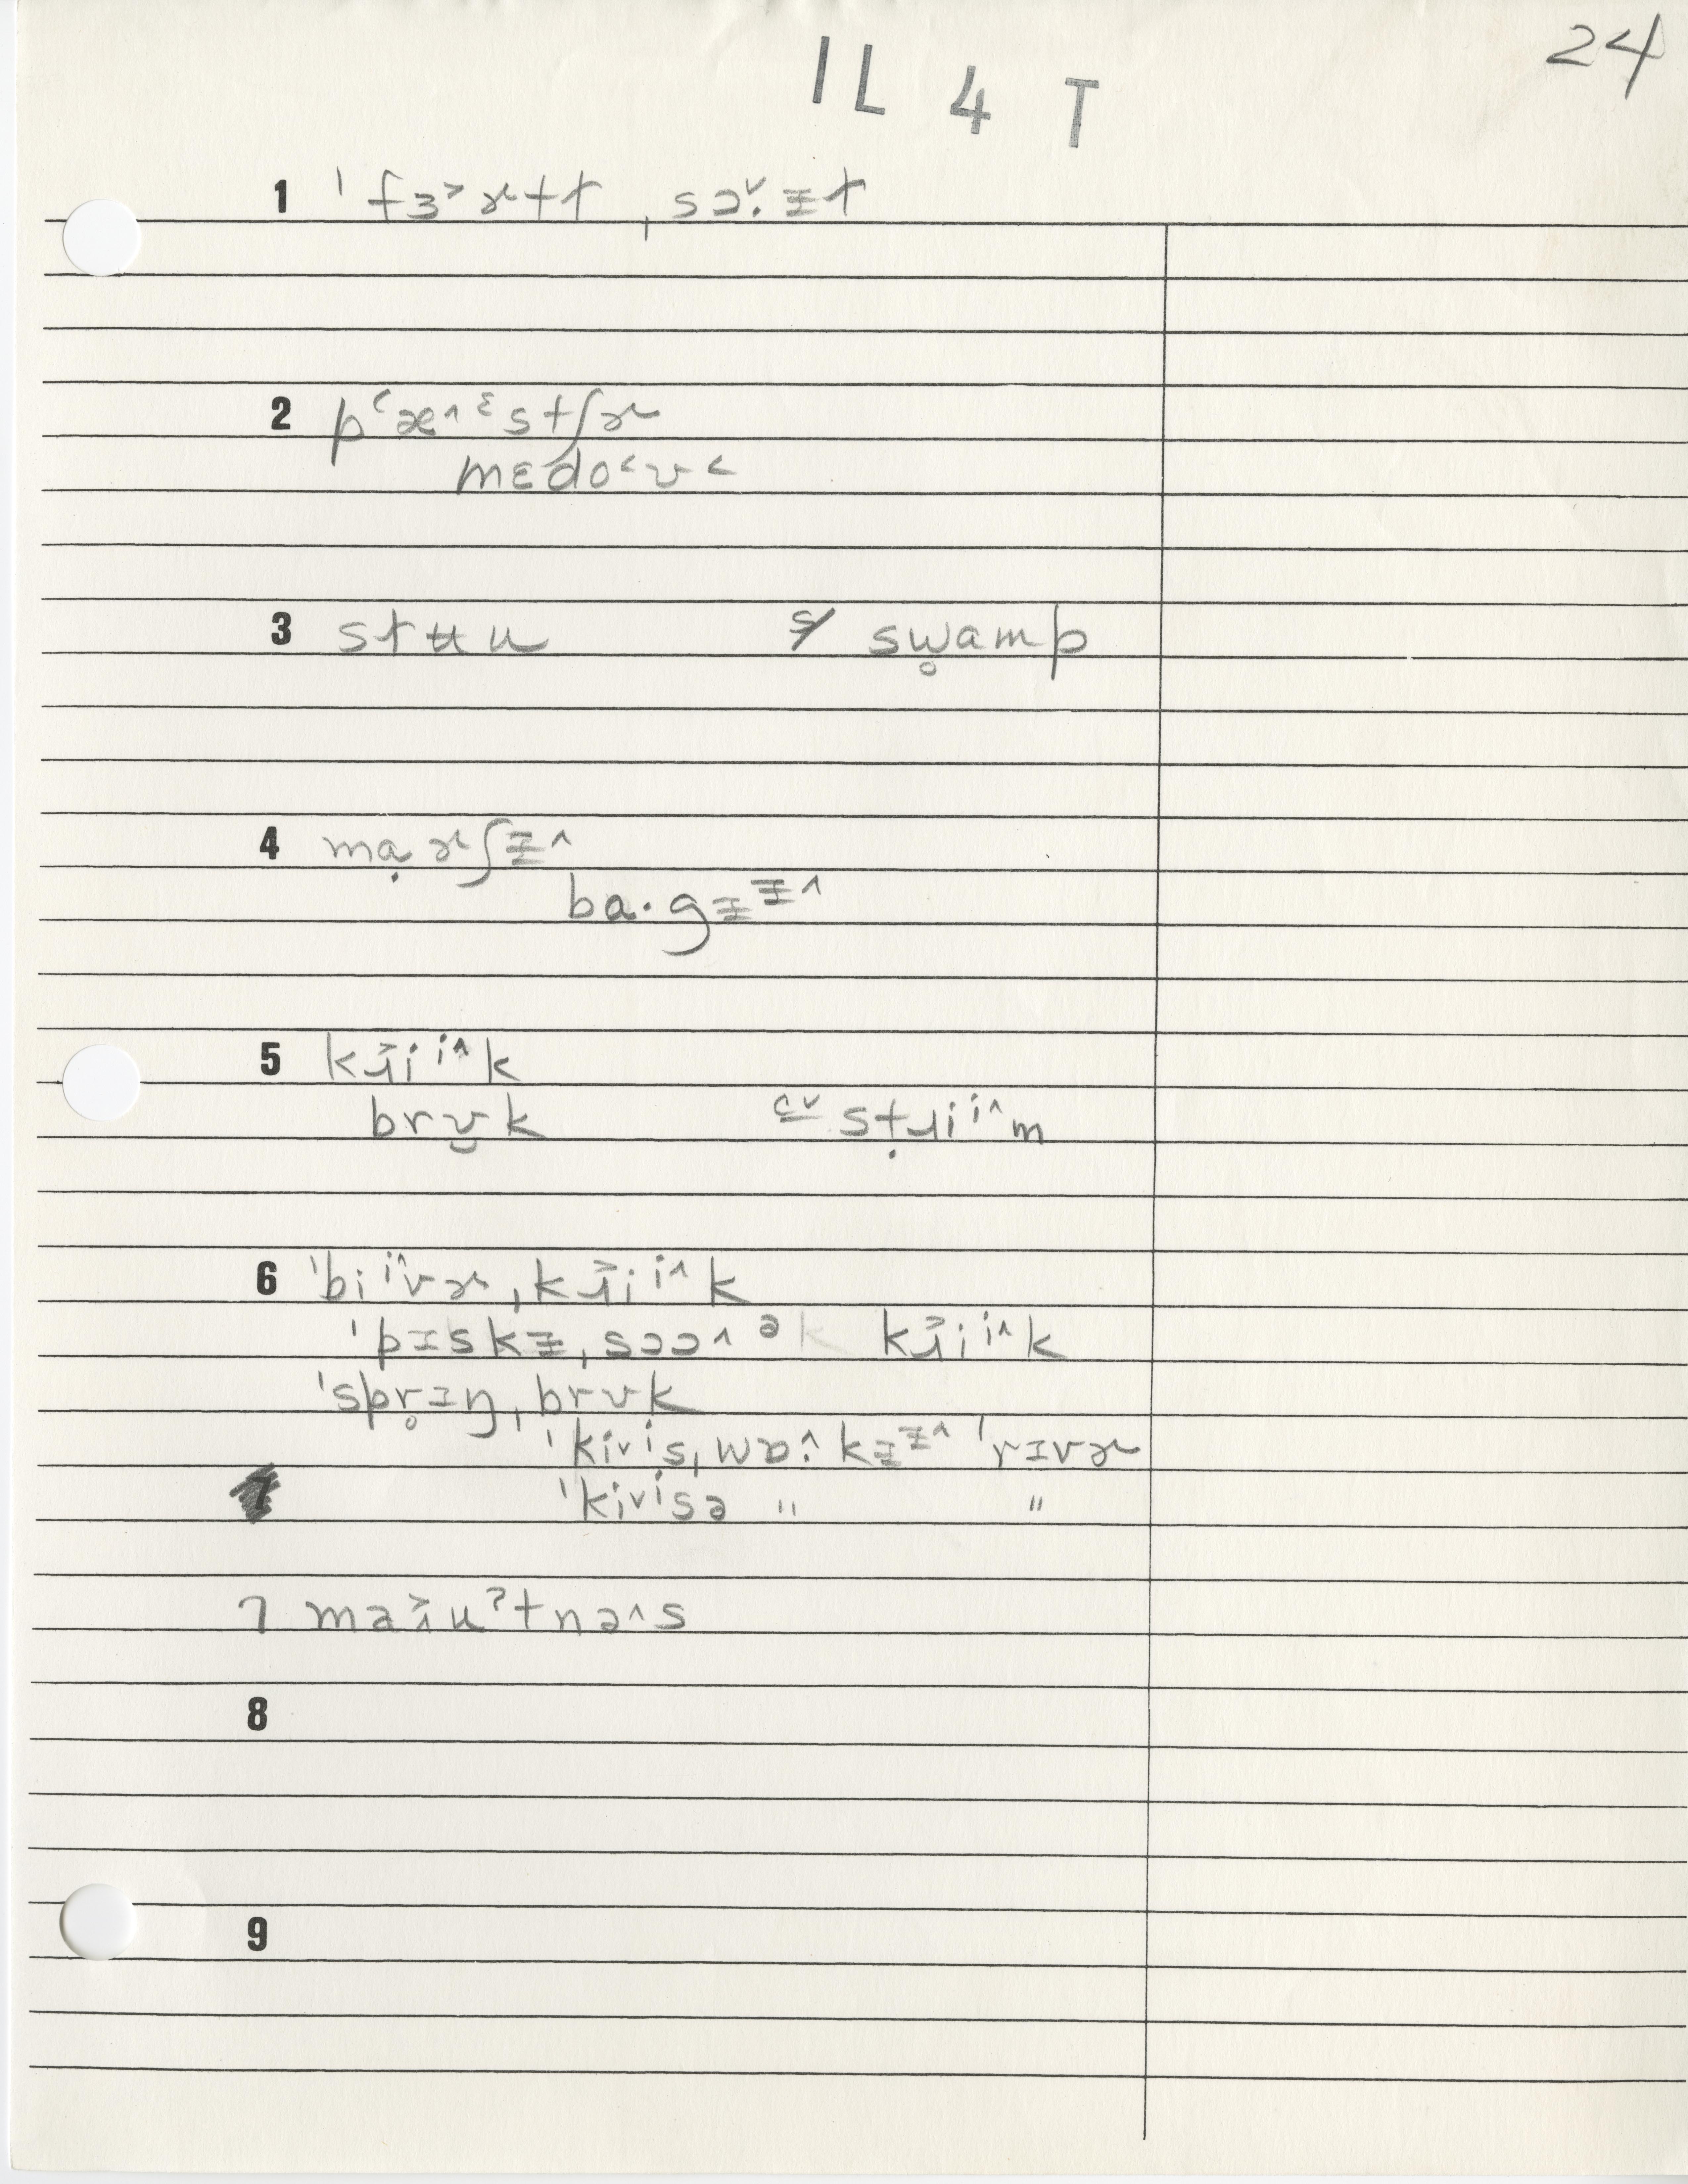 24
IL 4 T
1 ˈfɜ˃ɚtt ˌsɔ˅·ɪ̵t
2 p˂æ˄ᵋstʃɚ
mɛdo˂ʊ˂
3 stʉu s/ sw̥amp
4 mạɚʃɪ̵˄
ba·gɪᶧ˄
5 kɹ̌iⁱ˄k
brʊ̮k cv sṭɹiⁱ˄m
6 ˈbiⁱ˄vɚˌkɹ̌iⁱ˄k
ˈpɪskɪ̵ˌsɔɔ˄ᵊk kɹ̌iⁱ˄k
ˈspr̥ɪŋˌbrʊk
ˈki˅ⁱsˌwɒ·˄kɪᶧ˄ ˈrɪvɚ
7 ˈki˅ⁱsə " "
7 məɹ̌uˀtnə˄s
8
9